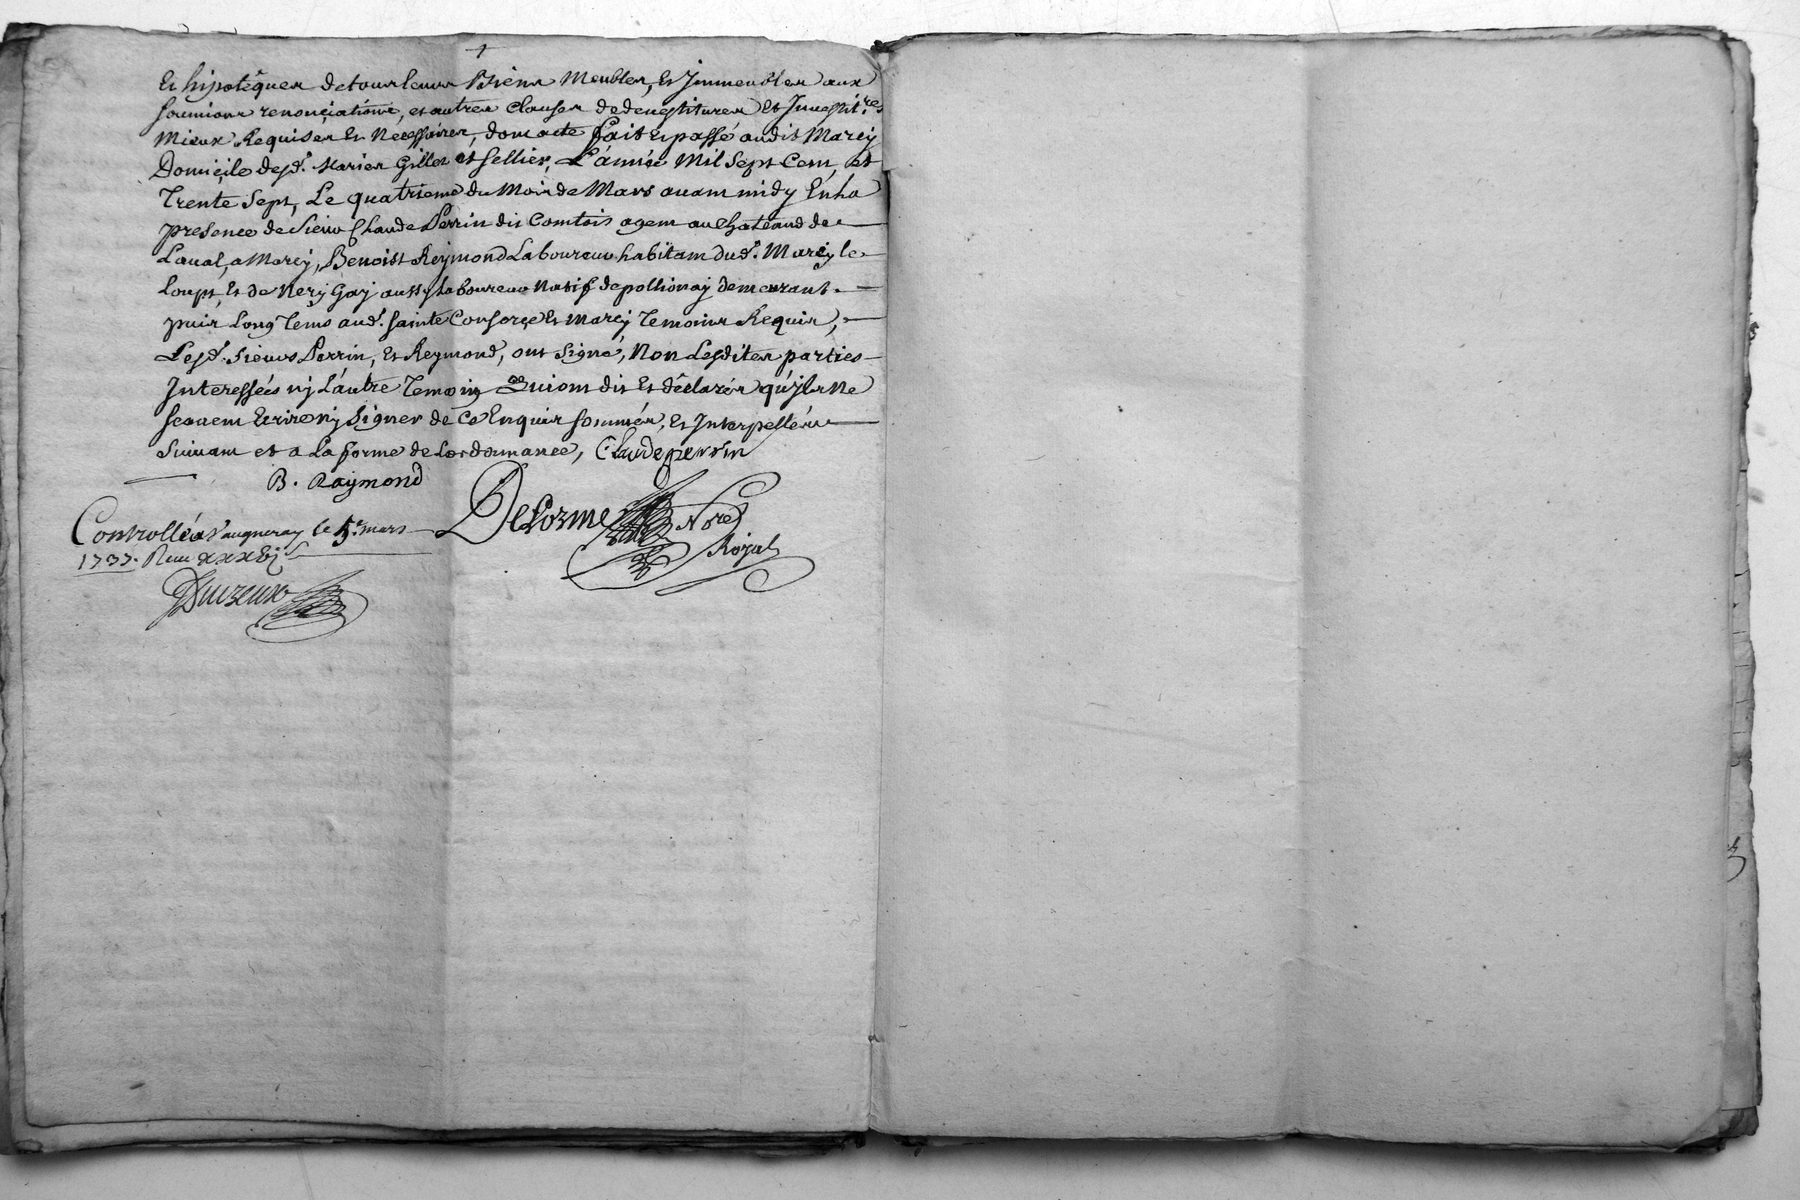 Et hipotequer de tous leurs Biens Meubles, Et Jmmeubles aux
soumions renonçiations, et autres clauses de devestitures Et Jnvestit.res
Mieux Requises Et Necessaires, dont acte fait Et passé audit Marcy
Domicile desd. Mariés Gillet et sellier, L'année Mil Sept Cent, et
Trente Sept, Le quatrieme du Mois de Mars avant midy En la
presence de Sieur Claude Perrin dit Comtois agent au Chateaud de
Laval, a Marcy, Benoist Reymond Laboureur habitant dud. Marcy le
Loupt, Et de Nery Gay aussy Laboureur Natif de pollionay demeurant
puis Long Tems aud. Sainte Consorce Et Marcy Temoins Requis,
Lesd. Sieurs Perrin, Et Reymond, ont Signé, Non Lesdites parties
Jnteressées nj L'autre Temoin Qui ont dit Et déclarér qu'jls Ne
scavent Ecrire nj Signer de Ce Enquis sommés, Et Jnterpellés
Suivant et a La forme de Lordonnance, Claude perrin
B. Raymond
DeLorme Nore
Royal
Controllé a Vaugneray le 5.e mars
1737. Reçu